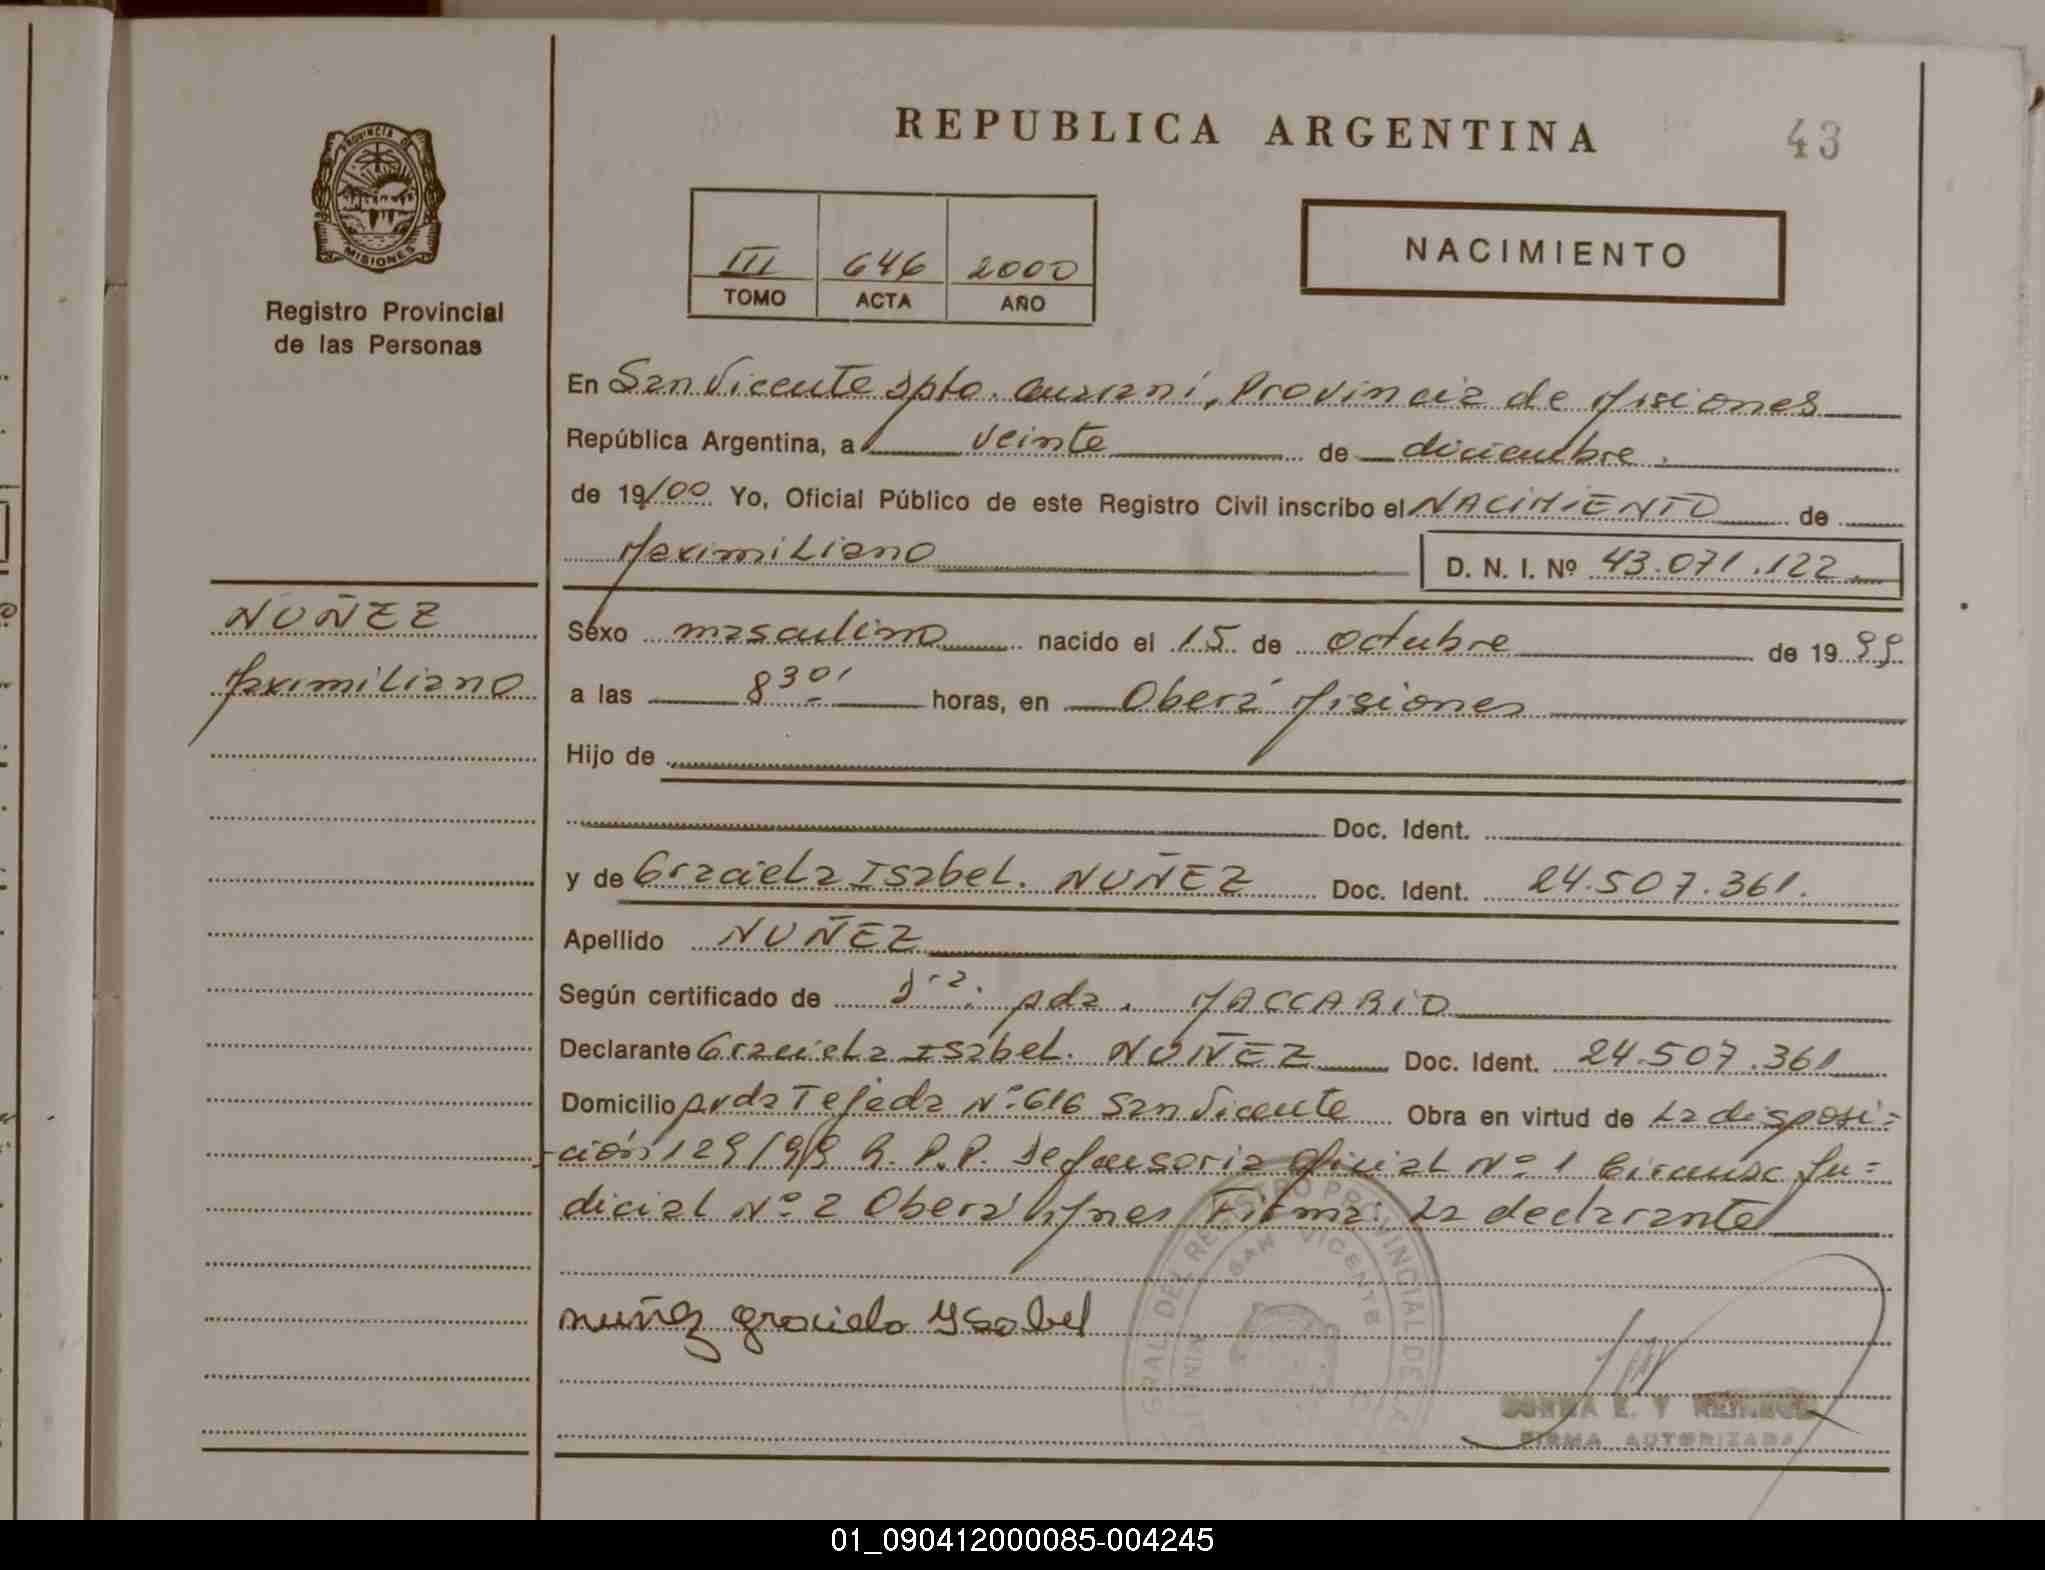 REPUBLICA ARGENTINA
43
PROVINCIA DE
MISIONES
Registro Provincial
de las Personas
III 646 2000
TOMO ACTA AÑO
NACIMIENTO
En San Vicente Dpto. Guaraní, Provincia de Misiones
República Argentina, a veinte de diciembre.
de 19/00 Yo, Oficial Público de este Registro Civil inscribo el NACIMIENTO de
Maximiliano D. N. I. Nº 43.071.122
NUÑEZ
Maximiliano
Sexo masculino nacido el 15 de octubre de 1999
a las 8 30' horas, en Oberá Misiones
Hijo de
Doc. Ident.
y de Graciela Isabel. NUÑEZ Doc. Ident. 24.507.361.
Apellido NUÑEZ
Según certificado de Dra. Ada. MACCARIO
Declarante Graciela Isabel. NUÑEZ Doc. Ident. 24.507.361
Domicilio Avda Tejeda Nº 616 San Vicente Obra en virtud de La disposi=
ción 129/99 R.P.P. Defensoria Oficial Nº 1 Circunsc Ju=
dicial Nº 2 Oberá Mnes Firma: La declarante
nuñez graciela Ysabel
GRAL DEL REGISTRO PROVINCIAL DE LA
SAN VICENTE
FIRMA AUTORIZADA
01_090412000085-004245